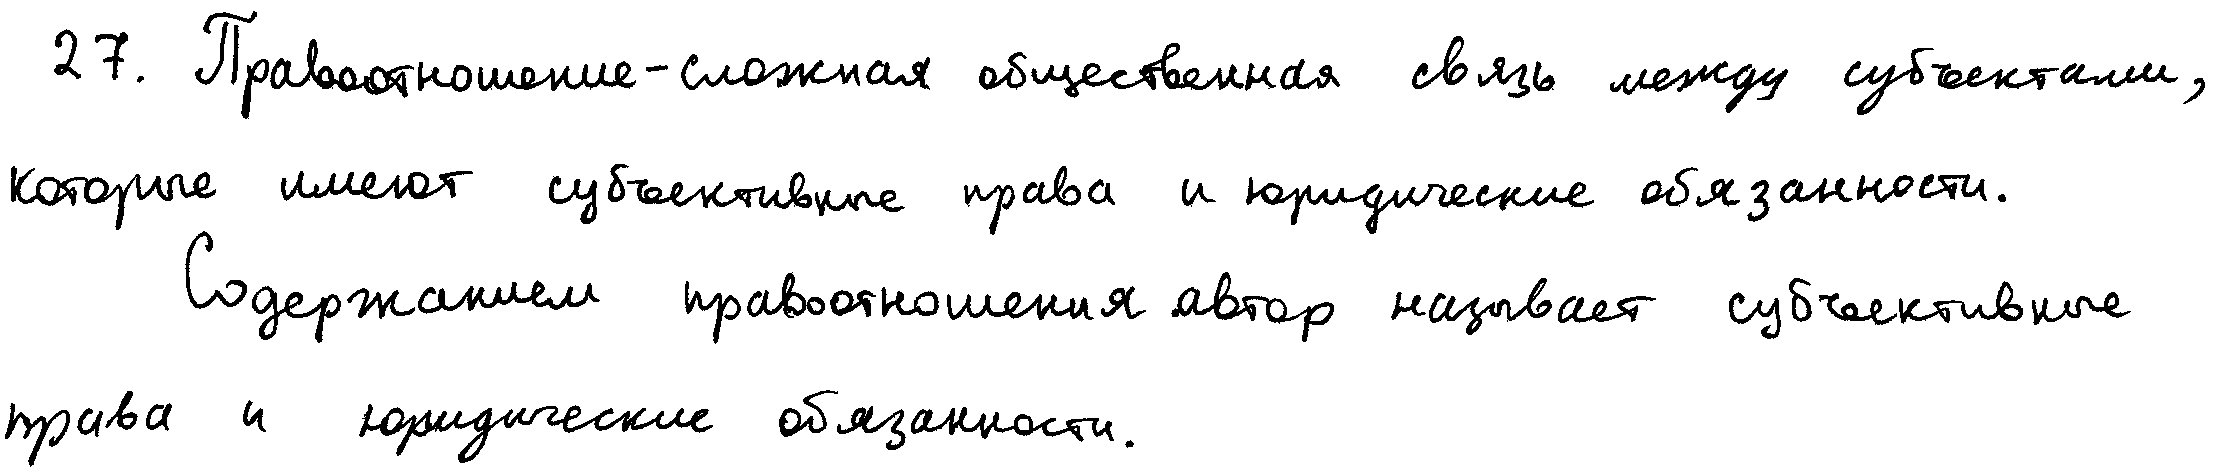 27. Правоотношение-сложная общественная связь между субъектами,
которые имеют субъективные права и юридические обязанности.
Содержанием правоотношения автор называет субъективные
права и юридические обязанности.